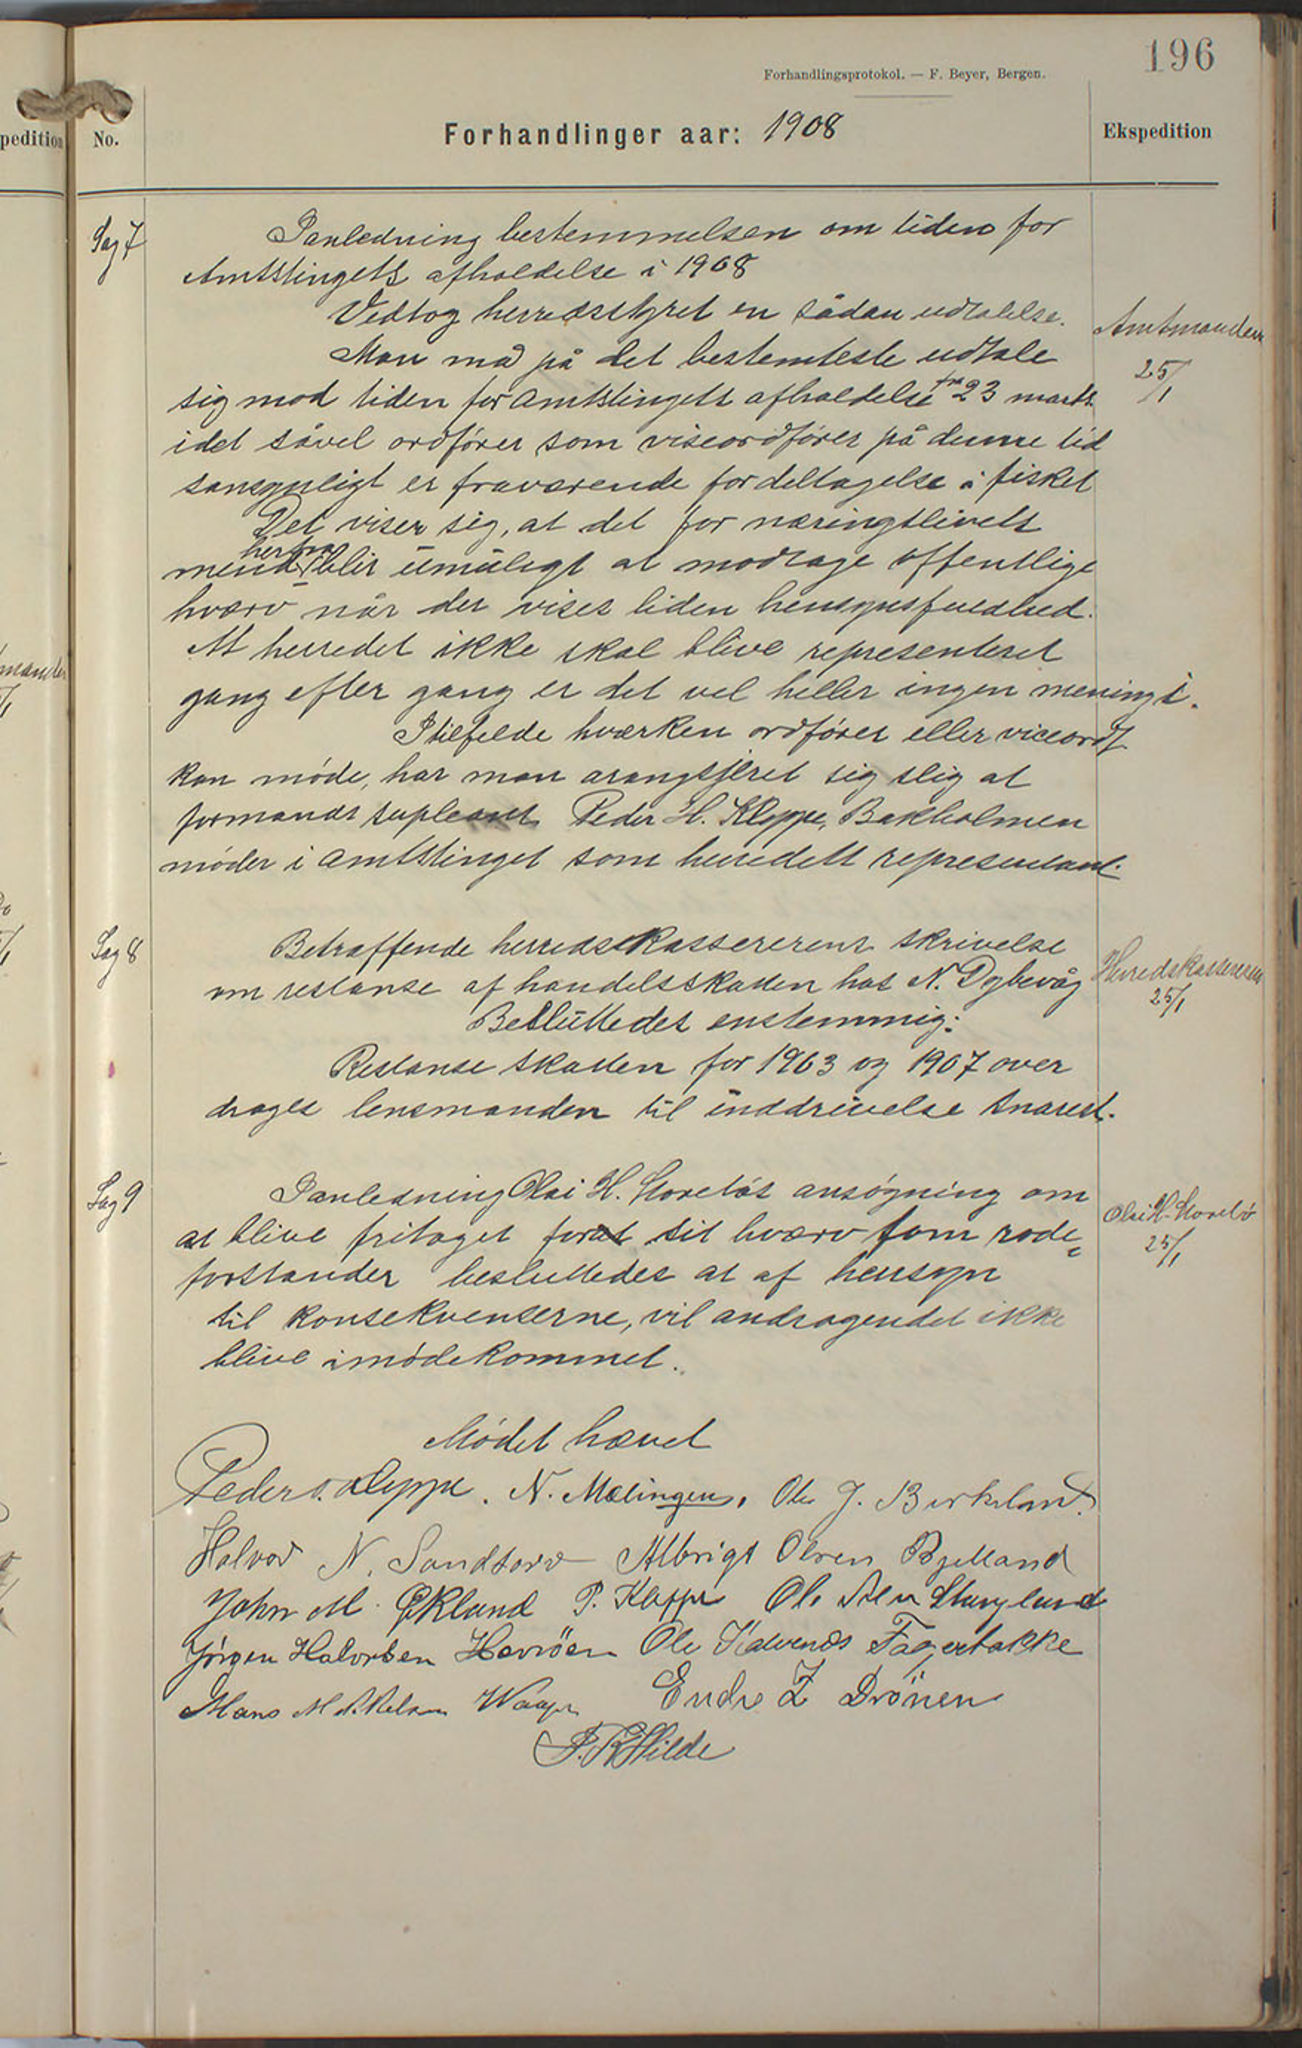 196
Forhandlingsprotokol. — F. Beyer, Bergen.
pedition
No.
Forhandlinger aar: 1908
Ekspedition
Sag 7
I anledning bestemmelsen om tiden for
Amtstingets afholdelse i 1908
Vedtog herredsstyret en sådan udtalelse.
Amtmanden
25/1
Man må på det bestemteste udtale
sig mod tiden for amtstingets afholdelse fra 23 marts
idet såvel ordfører som viseordfører på denne tid
sansynligt er fraværende for deltagelse i fisket
Det viser sig, at det for næringslivets
mend herfra blir umuligt at modtage offentlige
hværv når der vises liden hensynsfuldhed.
At herredet ikke skal blive representeret
gang efter gang er det vel heller ingen mening i.
I tilfelde hværken ordfører eller viceordf
kan møde, har man arangsjeret sig slig at
formands supleant Peder H. Kleppe, Bakholmen
møder i amtstinget som herredets representant.
Sag 8
Betræffende herredskassererens skrivelse
om restanse af handelsskatten hos N. Dybevåg
Herredskassereren
25/1
Besluttedes enstemmig:
Restanse skatten for 1903 og 1907 over
drages lensmanden til inddrivelse snarest.
Sag 9
I anledning Olai H. Storebøs ansøgning om
at blive fritaget for sit hværv som rode-
forstander besluttedes at af hensyn
til konsekvenserne, vil andragendet ikke
blive imødekommet.
Olai H. Storebø
25/1
Mødet hævet
Peder O. Kleppe. N. Mælingen. Ole J. Birkeland.
Halvor N. Sandtorv Albrigt Olsen Bjelland
John M. Økland P. Kleppe Ole
Jørgen Halvorsen Hevrøen Ole Fagerbakke
Mons Mikkelsen Waage Endre Z Drönen